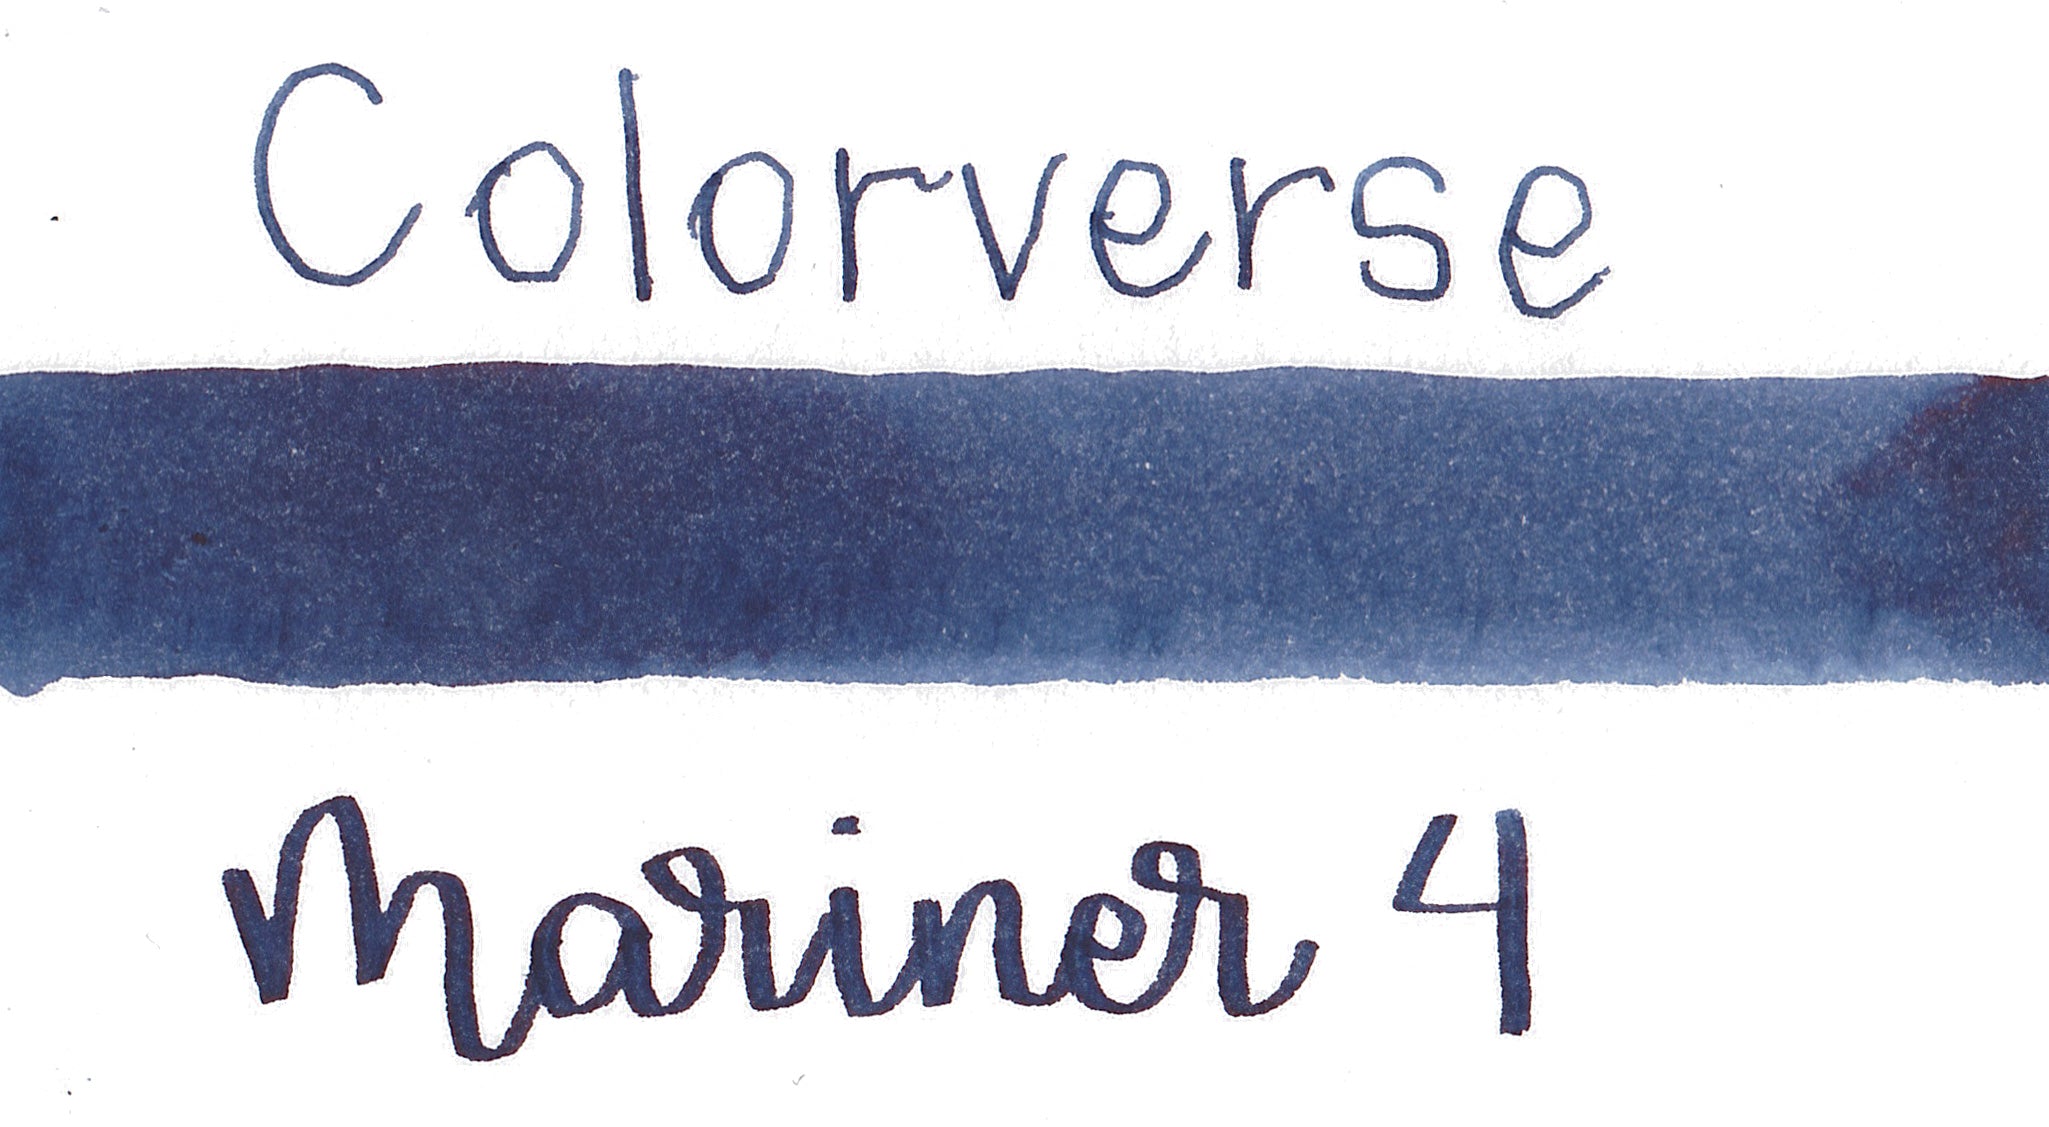 Colorverse
Mariner 4